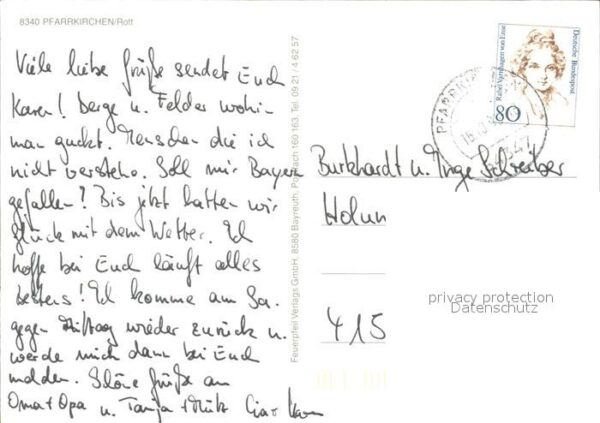 8340 PFARRKIRCHEN/Rott
Viele liebe Grüße sendet Euch
Karen! Berge u. Felder wohin
man guckt. Menschen die ich
nicht verstehe. Soll mir Bayern
gefallen? Bis jetzt hatten wir
Glück mit dem Wetter. Ich
hoffe bei Euch läuft alles
bestens! Ich komme am Sa.
gegen Mittag wieder zurück u.
werde mich dann bei Euch
melden. Schöne Grüße an
Oma + Opa u. Tanja + Ciao Karen
Feuerpfeil Verlags GmbH, 8580 Bayreuth, Postfach 160 163, Tel. 09 21 / 4 62 57
Rahel Varnhagen von Ense
Deutsche Bundespost
80
PFARRK
8347
Burkhardt u. Inge Schreiber
415
privacy protection
Datenschutz